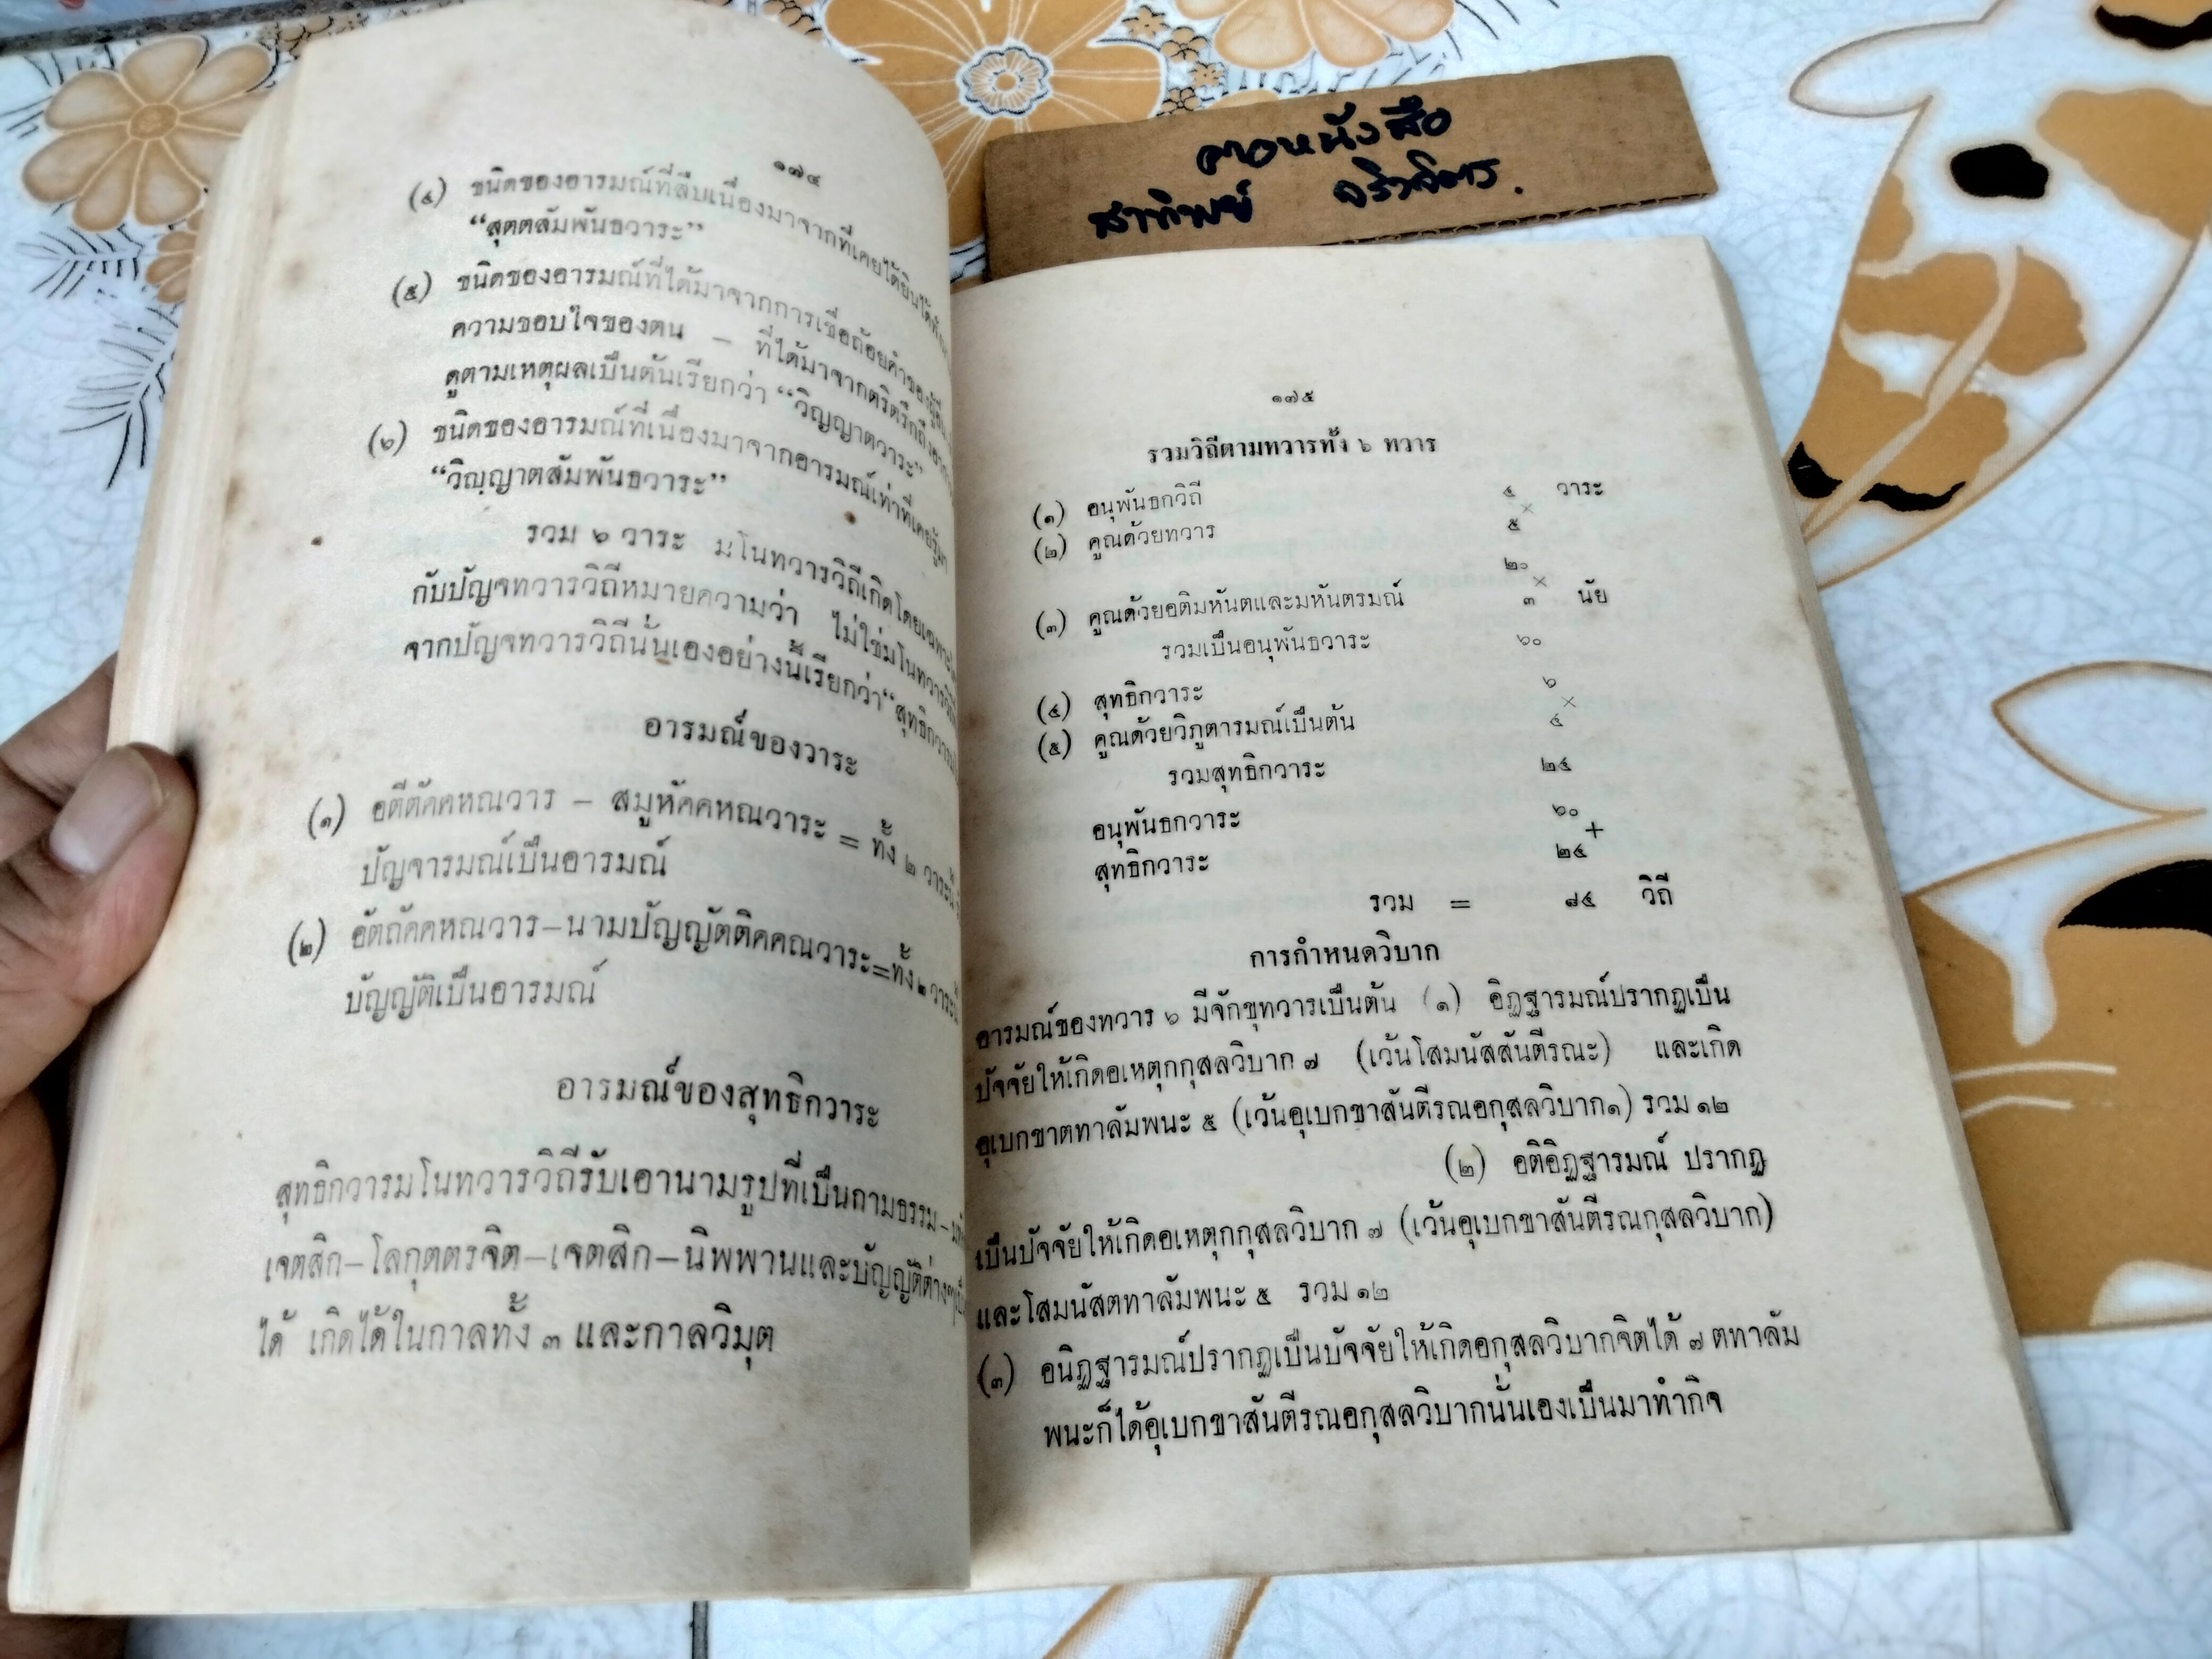 ๑๗๔
(๔) ชนิดของอารมณ์ที่สืบเนื่องมาจากที่เคยได้ยินได้ฟัง
“สุตตสัมพันธวาระ”
(๕) ชนิดของอารมณ์ที่ได้มาจากการเชื่อถ้อยคำของผู้อื่น
ความชอบใจของตน – ที่ได้มาจากตริตรึกถึงอาการ
ดูตามเหตุผลเป็นต้นเรียกว่า “วิญญาตวาระ”
(๖) ชนิดของอารมณ์ที่เนื่องมาจากอารมณ์เท่าที่เคยรู้มา
“วิญญาตสัมพันธวาระ”
รวม ๖ วาระ มโนทวารวิถีเกิดโดยเฉพาะ
กับปัญจทวารวิถีหมายความว่า ไม่ใช่มโนทวารวิถี
จากปัญจทวารวิถีนั่นเองอย่างนี้เรียกว่า “สุทธิกวาร
อารมณ์ของวาระ
(๑) อตีตัคคหณวาร – สมูหัคคหณวาระ = ทั้ง ๒ วาระนี้
ปัญจารมณ์เป็นอารมณ์
(๒) อัตถัคคหณวาร–นามปัญญัตติคคณวาระ=ทั้ง ๒ วาระนี้
บัญญัติเป็นอารมณ์
อารมณ์ของสุทธิกวาระ
สุทธิกวารมโนทวารวิถีรับเอานามรูปที่เป็นกามธรรม–
เจตสิก–โลกุตตรจิต–เจตสิก–นิพพานและบัญญัติต่างๆ
ได้ เกิดได้ในกาลทั้ง ๓ และกาลวิมุต
ภาพหนังสือ
สาทิพย์
๑๗๕
รวมวิถีตามทวารทั้ง ๖ ทวาร
(๑) อนุพันธกวิถี ๔ วาระ
×
(๒) คูณด้วยทวาร ๕
๒๐
×
(๓) คูณด้วยอติมหันตและมหันตรมณ์ ๓ นัย
รวมเป็นอนุพันธวาระ ๖๐
(๔) สุทธิกวาระ ๖
×
(๕) คูณด้วยวิภูตารมณ์เป็นต้น ๔
รวมสุทธิกวาระ ๒๔
อนุพันธกวาระ ๖๐
+
สุทธิกวาระ ๒๔
รวม = ๘๔ วิถี
การกำหนดวิบาก
อารมณ์ของทวาร ๖ มีจักขุทวารเป็นต้น (๑) อิฏฐารมณ์ปรากฏเป็น
ปัจจัยให้เกิดอเหตุกกุสลวิบาก ๗ (เว้นโสมนัสสันตีรณะ) และเกิด
อุเบกขาตทาลัมพนะ ๕ (เว้นอุเบกขาสันตีรณอกุสลวิบาก๑) รวม ๑๒
(๒) อติอิฏฐารมณ์ ปรากฏ
เป็นปัจจัยให้เกิดอเหตุกกุสลวิบาก ๗ (เว้นอุเบกขาสันตีรณกุสลวิบาก)
และโสมนัสตทาลัมพนะ ๕ รวม ๑๒
(๓) อนิฏฐารมณ์ปรากฏเป็นปัจจัยให้เกิดอกุสลวิบากจิตได้ ๗ ตทาลัม
พนะก็ได้อุเบกขาสันตีรณอกุสลวิบากนั่นเองเป็นมาทำกิจ